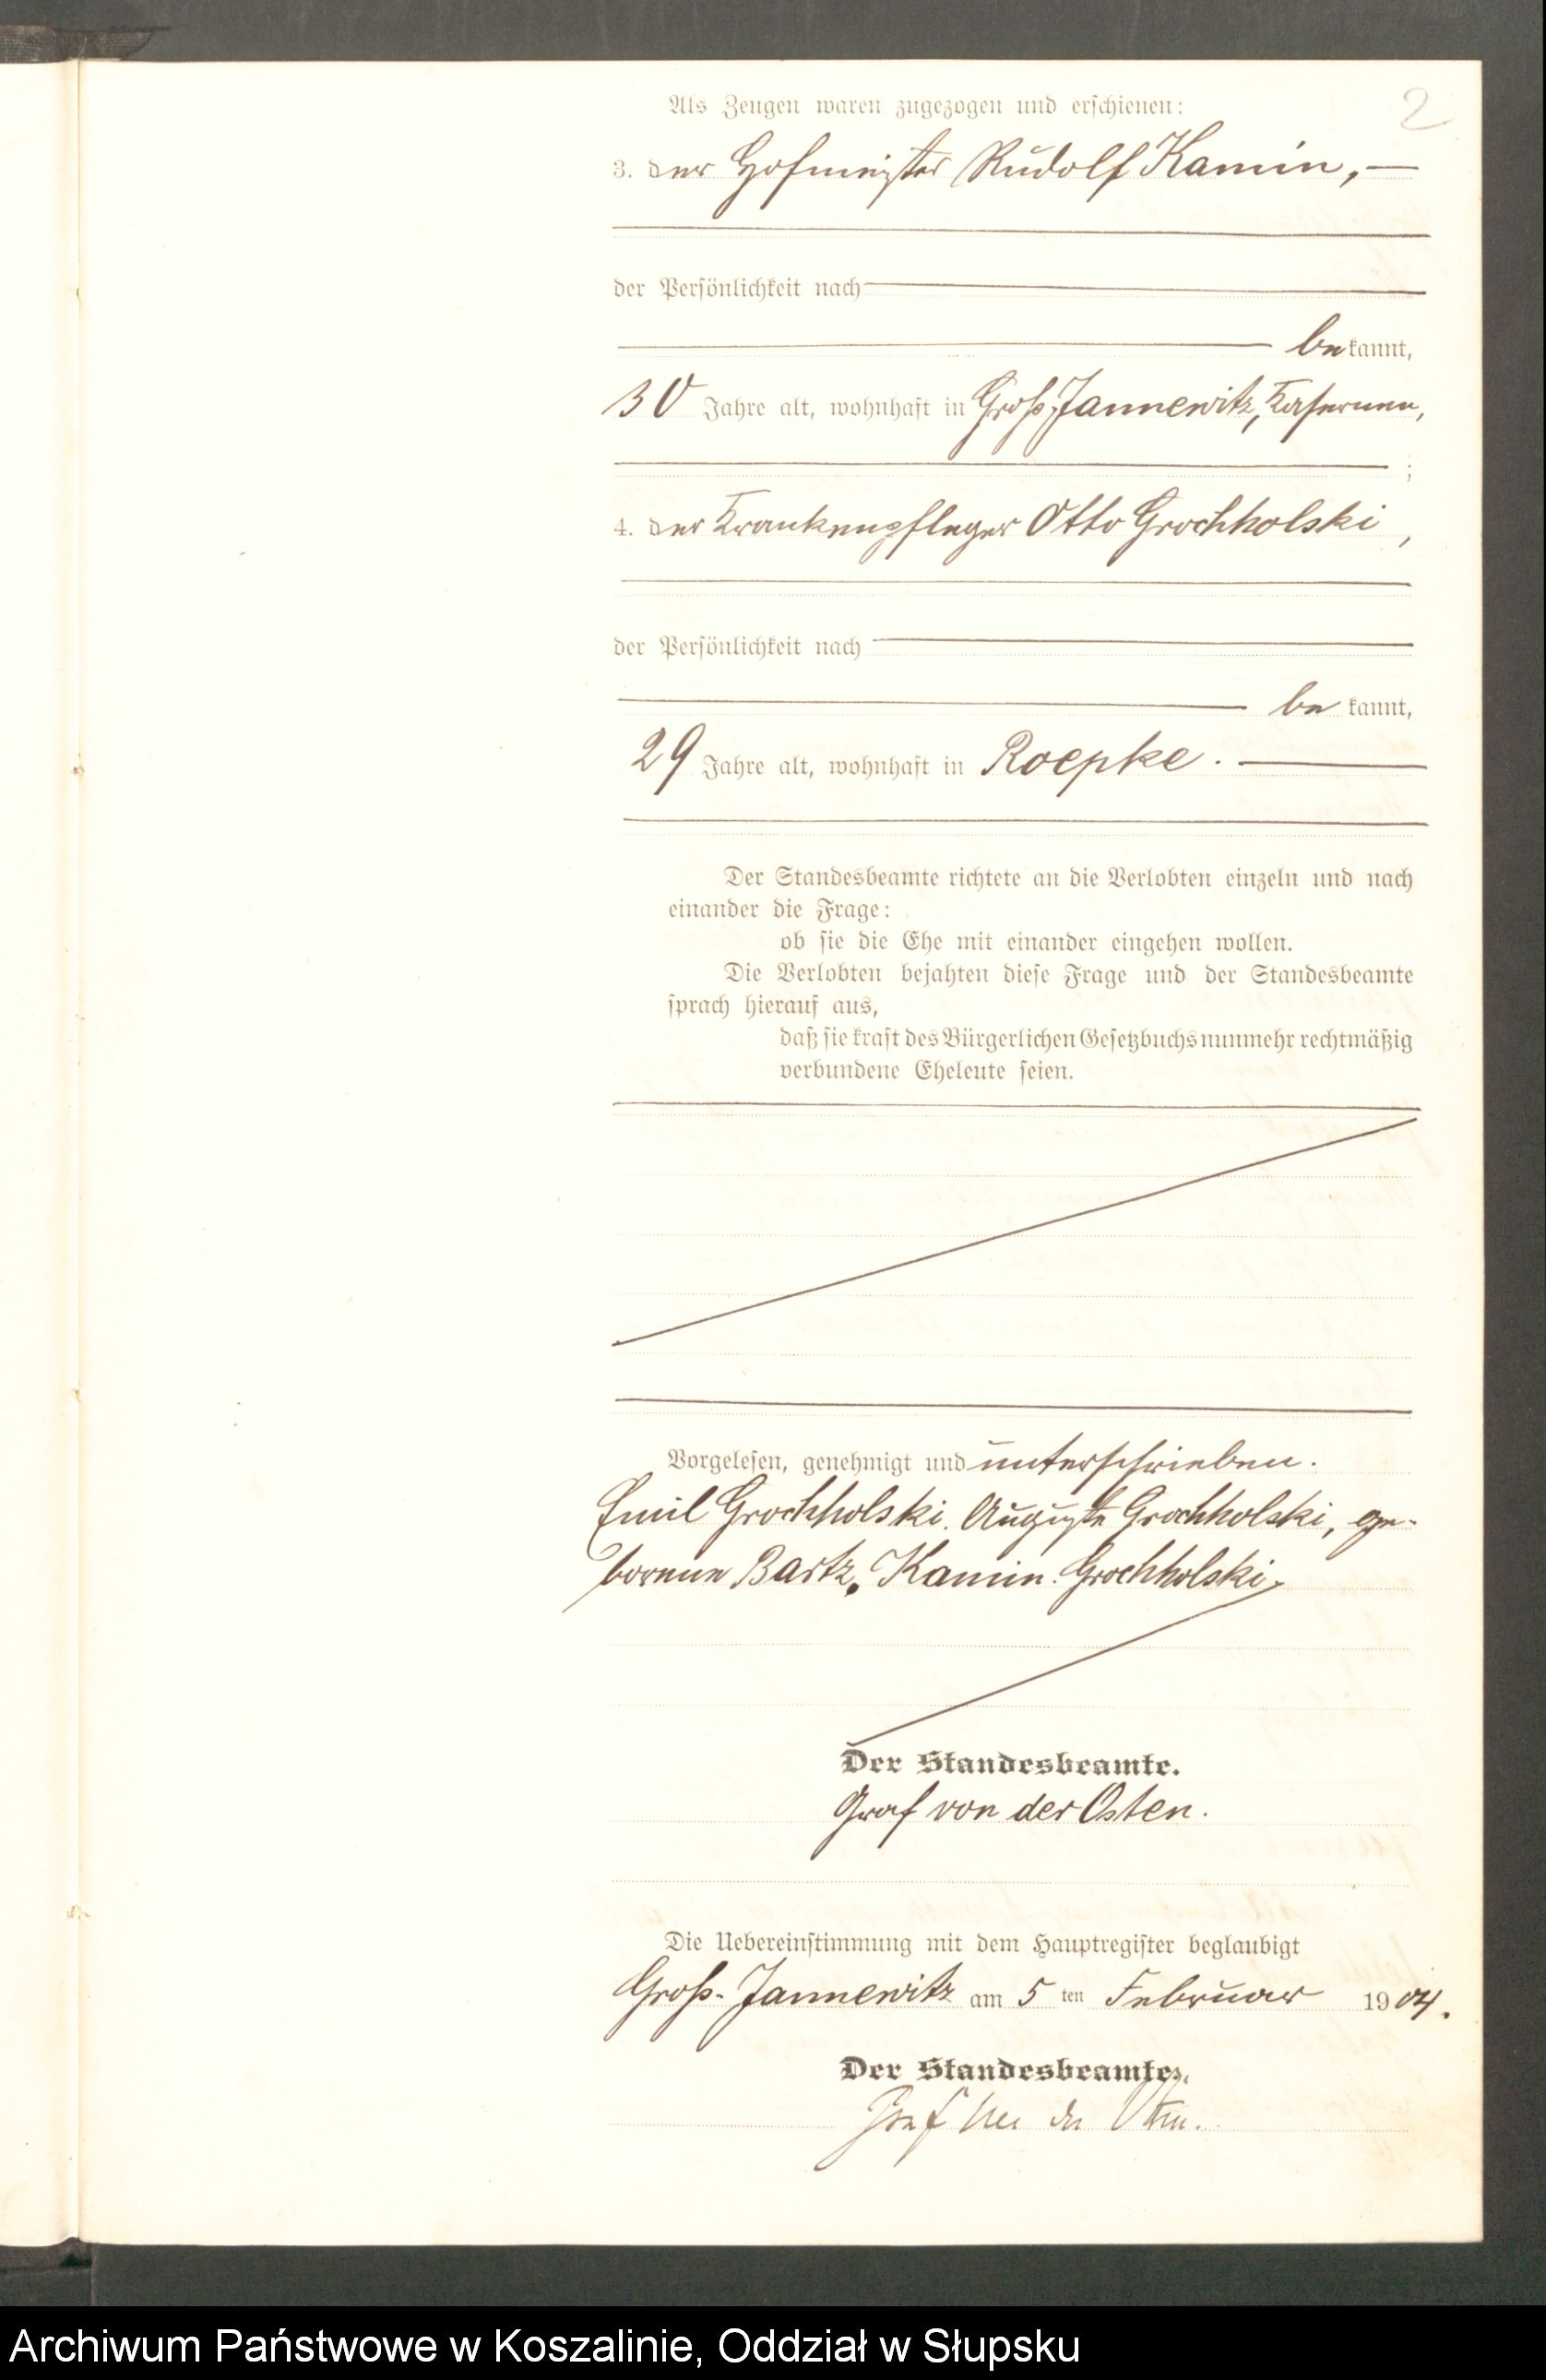 2
Als Zeugen waren zugezogen und erschienen:
3. der Hofmeister Rudolf Kamin, —
der Persönlichkeit nach
bekannt,
30 Jahre alt, wohnhaft in Groß-Jannewitz, Kasernen,
;
4. der Krankenpfleger Otto Grochholski,
der Persönlichkeit nach
be kannt,
29 Jahre alt, wohnhaft in Roepke.
Der Standesbeamte richtete an die Verlobten einzeln und nach
einander die Frage:
ob sie die Ehe mit einander eingehen wollen.
Die Verlobten bejahten diese Frage und der Standesbeamte
sprach hierauf aus,
daß sie kraft des Bürgerlichen Gesetzbuchs nunmehr rechtmäßig
verbundene Eheleute seien.
Vorgelesen, genehmigt und unterschrieben.
Emil Grochholski. Auguste Grochholski, ge-
borene Bartz. Kamin. Grochholski.
Der Standesbeamte.
Graf von der Osten.
Die Uebereinstimmung mit dem Hauptregister beglaubigt
Groß-Jannewitz am 5 ten Februar 1904.
Der Standesbeamte.
Graf von der Osten.
Archiwum Państwowe w Koszalinie, Oddział w Słupsku